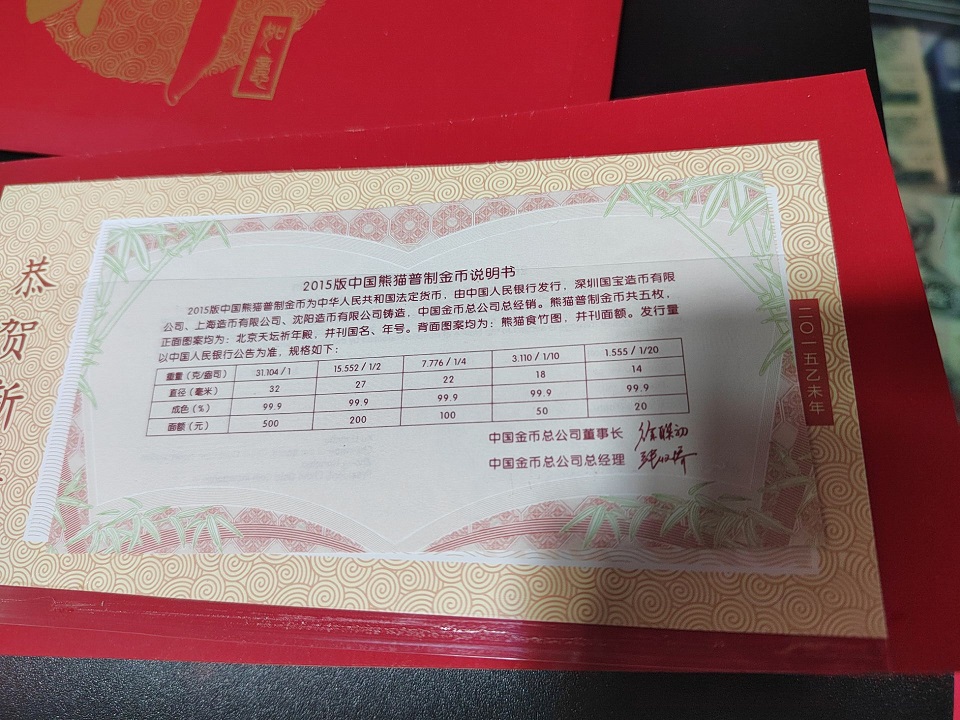 如意
恭
贺
新
二〇一五乙未年
2015版中国熊猫普制金币说明书
2015版中国熊猫普制金币为中华人民共和国法定货币，由中国人民银行发行，深圳国宝造币有限
公司、上海造币有限公司、沈阳造币有限公司铸造，中国金币总公司总经销。熊猫普制金币共五枚，
正面图案均为：北京天坛祈年殿，并刊国名、年号。背面图案均为：熊猫食竹图，并刊面额。发行量
以中国人民银行公告为准，规格如下：
重量（克/盎司） 31.104 / 1 15.552 / 1/2 7.776 / 1/4 3.110 / 1/10 1.555 / 1/20
直径（毫米） 32 27 22 18 14
成色（%） 99.9 99.9 99.9 99.9 99.9
面额（元） 500 200 100 50 20
中国金币总公司董事长
中国金币总公司总经理